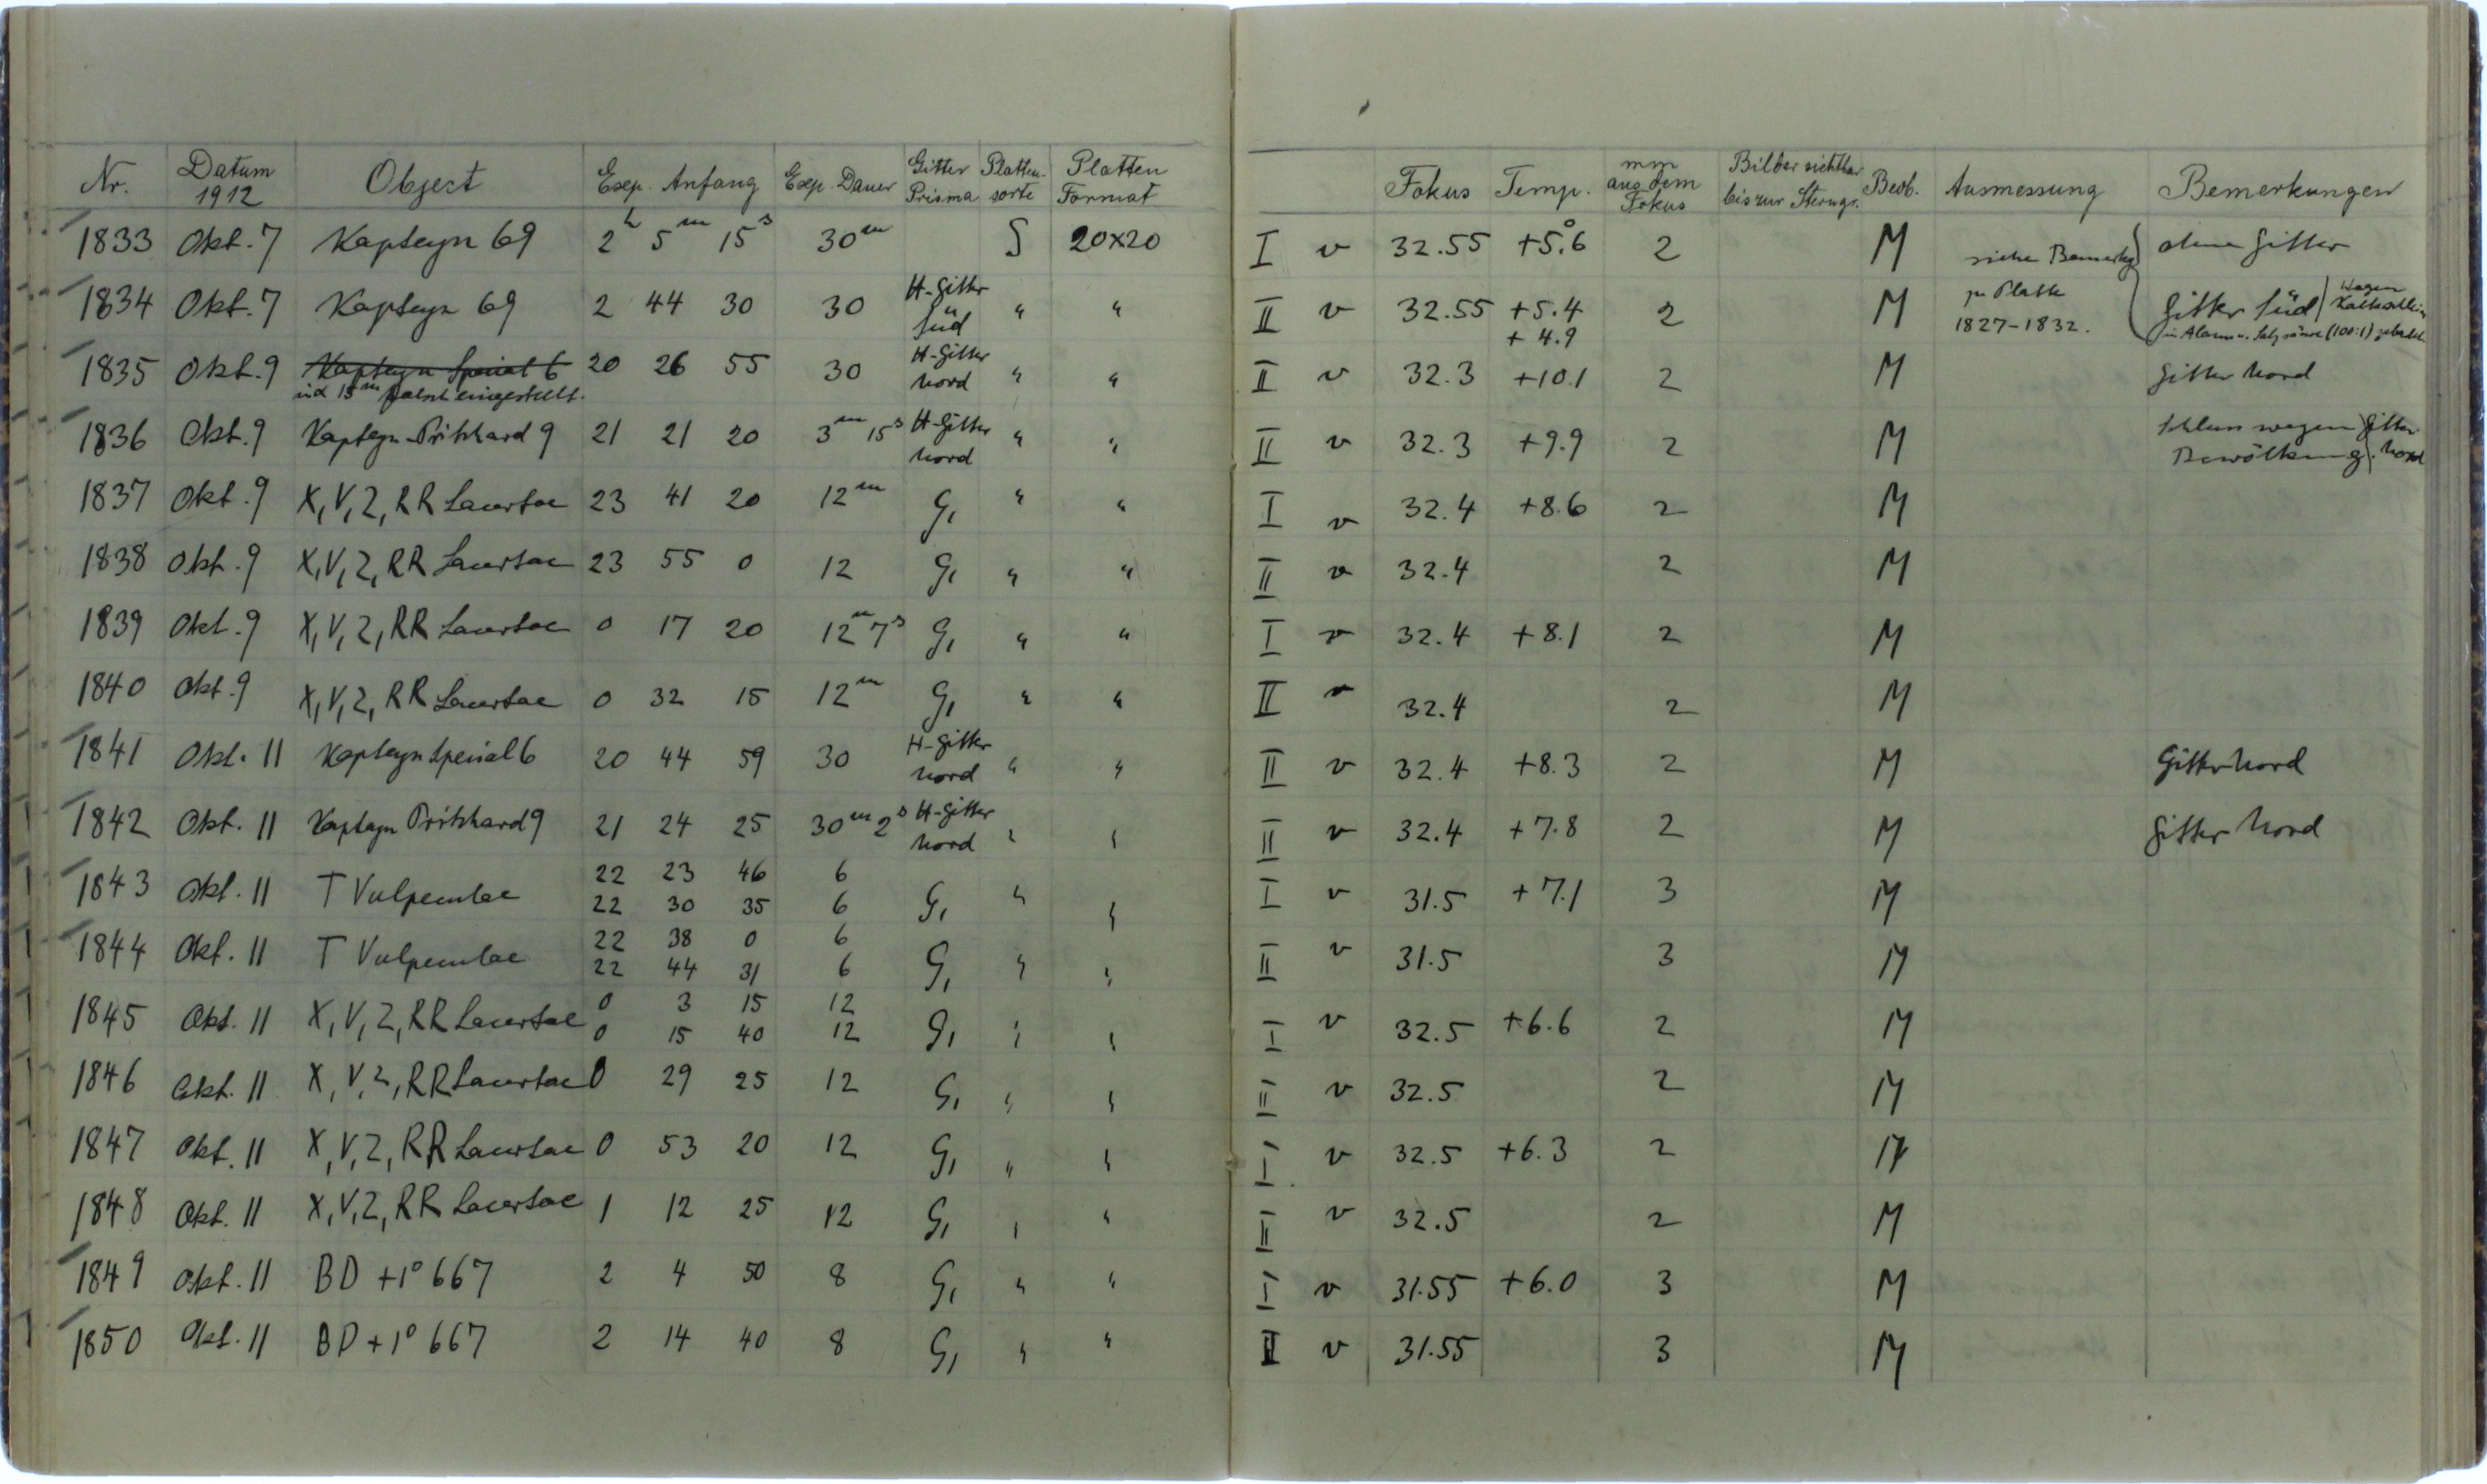 Nr. Datum 1912 Object Exp. Anfang Exp. Dauer Gitter Prisma Platten-sorte Platten Format Fokus Temp. mm aus dem Fokus Bilder sichtbar bis zur Sterngr. Beob. Ausmessung Bemerkungen
1833 Okt. 7 Kapteyn 69 2h 5m 15s 30m S 20x20 I v 32.55 +5.°6 2 M siehe Bemerkg ohne Gitter
1834 Okt. 7 Kapteyn 69 2 44 30 30 H-Gitter Süd " " II v 32.55 +5.4 +4.9 2 M zu Platte 1827-1832. Gitter Süd wegen in Alaun u. Salzsäure (100:1) gebadet
1835 Okt. 9 Kapteyn Spezial 6 20 26 55 30 H-Gitter Nord " " II v 32.3 +10.1 2 M Gitter Nord
15m falsch eingestellt.
1836 Okt. 9 Kapteyn-Pritchard 9 21 21 20 3m 15s H-Gitter Nord " " II v 32.3 +9.9 2 M Schluss wegen Bewölkung. Gitter Nord
1837 Okt. 9 X, V, Z, RR Lacertae 23 41 20 12m G1 " " I v 32.4 +8.6 2 M
1838 Okt. 9 X, V, Z, RR Lacertae 23 55 0 12 G1 " " II v 32.4 2 M
1839 Okt. 9 X, V, Z, RR Lacertae 0 17 20 12m 7s G1 " " I v 32.4 +8.1 2 M
1840 Okt. 9 X, V, Z, RR Lacertae 0 32 15 12m G1 " " II v 32.4 2 M
1841 Okt. 11 Kapteyn Spezial 6 20 44 59 30 H-Gitter Nord " " II v 32.4 +8.3 2 M Gitter Nord
1842 Okt. 11 Kapteyn Pritchard 9 21 24 25 30m 2s H-Gitter Nord " " II v 32.4 +7.8 2 M Gitter Nord
1843 Okt. 11 T Vulpeculae 22 23 46 6 G1 " " I v 31.5 +7.1 3 M
22 30 35 6
1844 Okt. 11 T Vulpeculae 22 38 0 6 G1 " " II v 31.5 3 M
22 44 31 6
1845 Okt. 11 X, V, Z, RR Lacertae 0 3 15 12 G1 " " I v 32.5 +6.6 2 M
0 15 40 12
1846 Okt. 11 X, V, Z, RR Lacertae 0 29 25 12 G1 " " II v 32.5 2 M
1847 Okt. 11 X, V, Z, RR Lacertae 0 53 20 12 G1 " " I v 32.5 +6.3 2 M
1848 Okt. 11 X, V, Z, RR Lacertae 1 12 25 12 G1 " " II v 32.5 2 M
1849 Okt. 11 BD +1° 667 2 4 50 8 G1 " " I v 31.55 +6.0 3 M
1850 Okt. 11 BD +1° 667 2 14 40 8 G1 " " II v 31.55 3 M